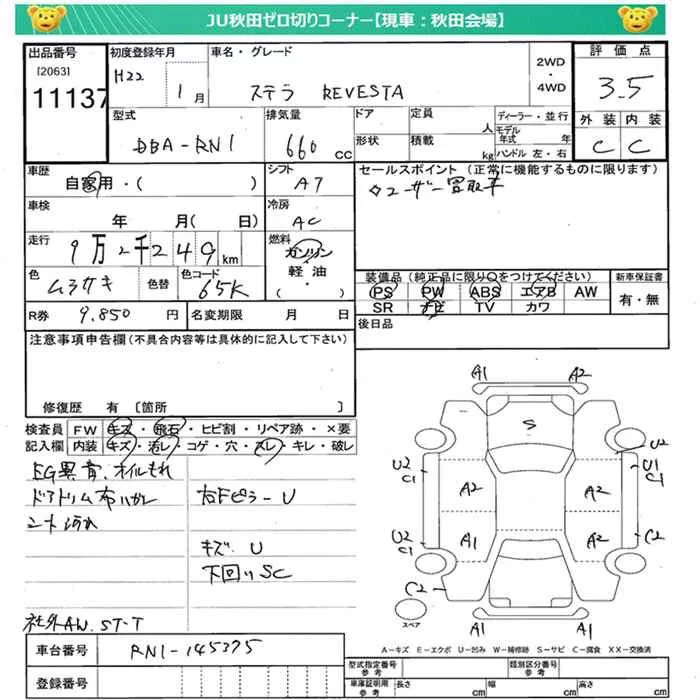 JU秋田ゼロ切りコーナー【現車：秋田会場】
出品番号
[2063]
11137
初度登録年月
H22 1月
車名・グレード
ステラ REVESTA
2WD
・
4WD
評価点
3.5
外装 内装
C C
型式
DBA-RN1
排気量
660 cc
ドア
形状
定員
人
積載
kg
ディーラー・並行
モデル年式 年
ハンドル 左・右
車歴
自家用・( )
シフト
A7
セールスポイント (正常に機能するものに限ります)
ユーザー買取車
車検
年 月( 日)
冷房
AC
走行
9万2千249km
燃料
ガソリン
軽・油
・( )
色
ムラサキ
色替
色コード
65K
装備品(純正品に限り○をつけてください)
PS PW ABS エアB AW
SR ナビ TV カワ
新車保証書
有・無
R券 9,850 円
名変期限 月 日
後日品
注意事項申告欄(不具合内容等は具体的に記入して下さい)
修復歴 有 〔箇所 〕
検査員 FW キズ・飛石・ヒビ割・リペア跡・×要
記入欄 内装 キズ・汚レ・コゲ・穴・スレ・キレ・破レ
EG異音、オイルもれ
ドアトリム布ハガレ
シート汚れ
右Fピラー U
キズ、U
下回りSC
社外AW. ST-T
A1 A2
S
U2
U2 C1
A2 A2
U1 C1
U2 C1
A1 A2
C2
C2
スペア
A1 A1
A-キズ E-エクボ U-凹み W-補修跡 S-サビ C-腐食 XX-交換済
車台番号 RN1-145375
登録番号
型式指定番号
参考
類別区分番号
参考
車庫証明用
参考
長さ cm 幅 cm 高さ cm